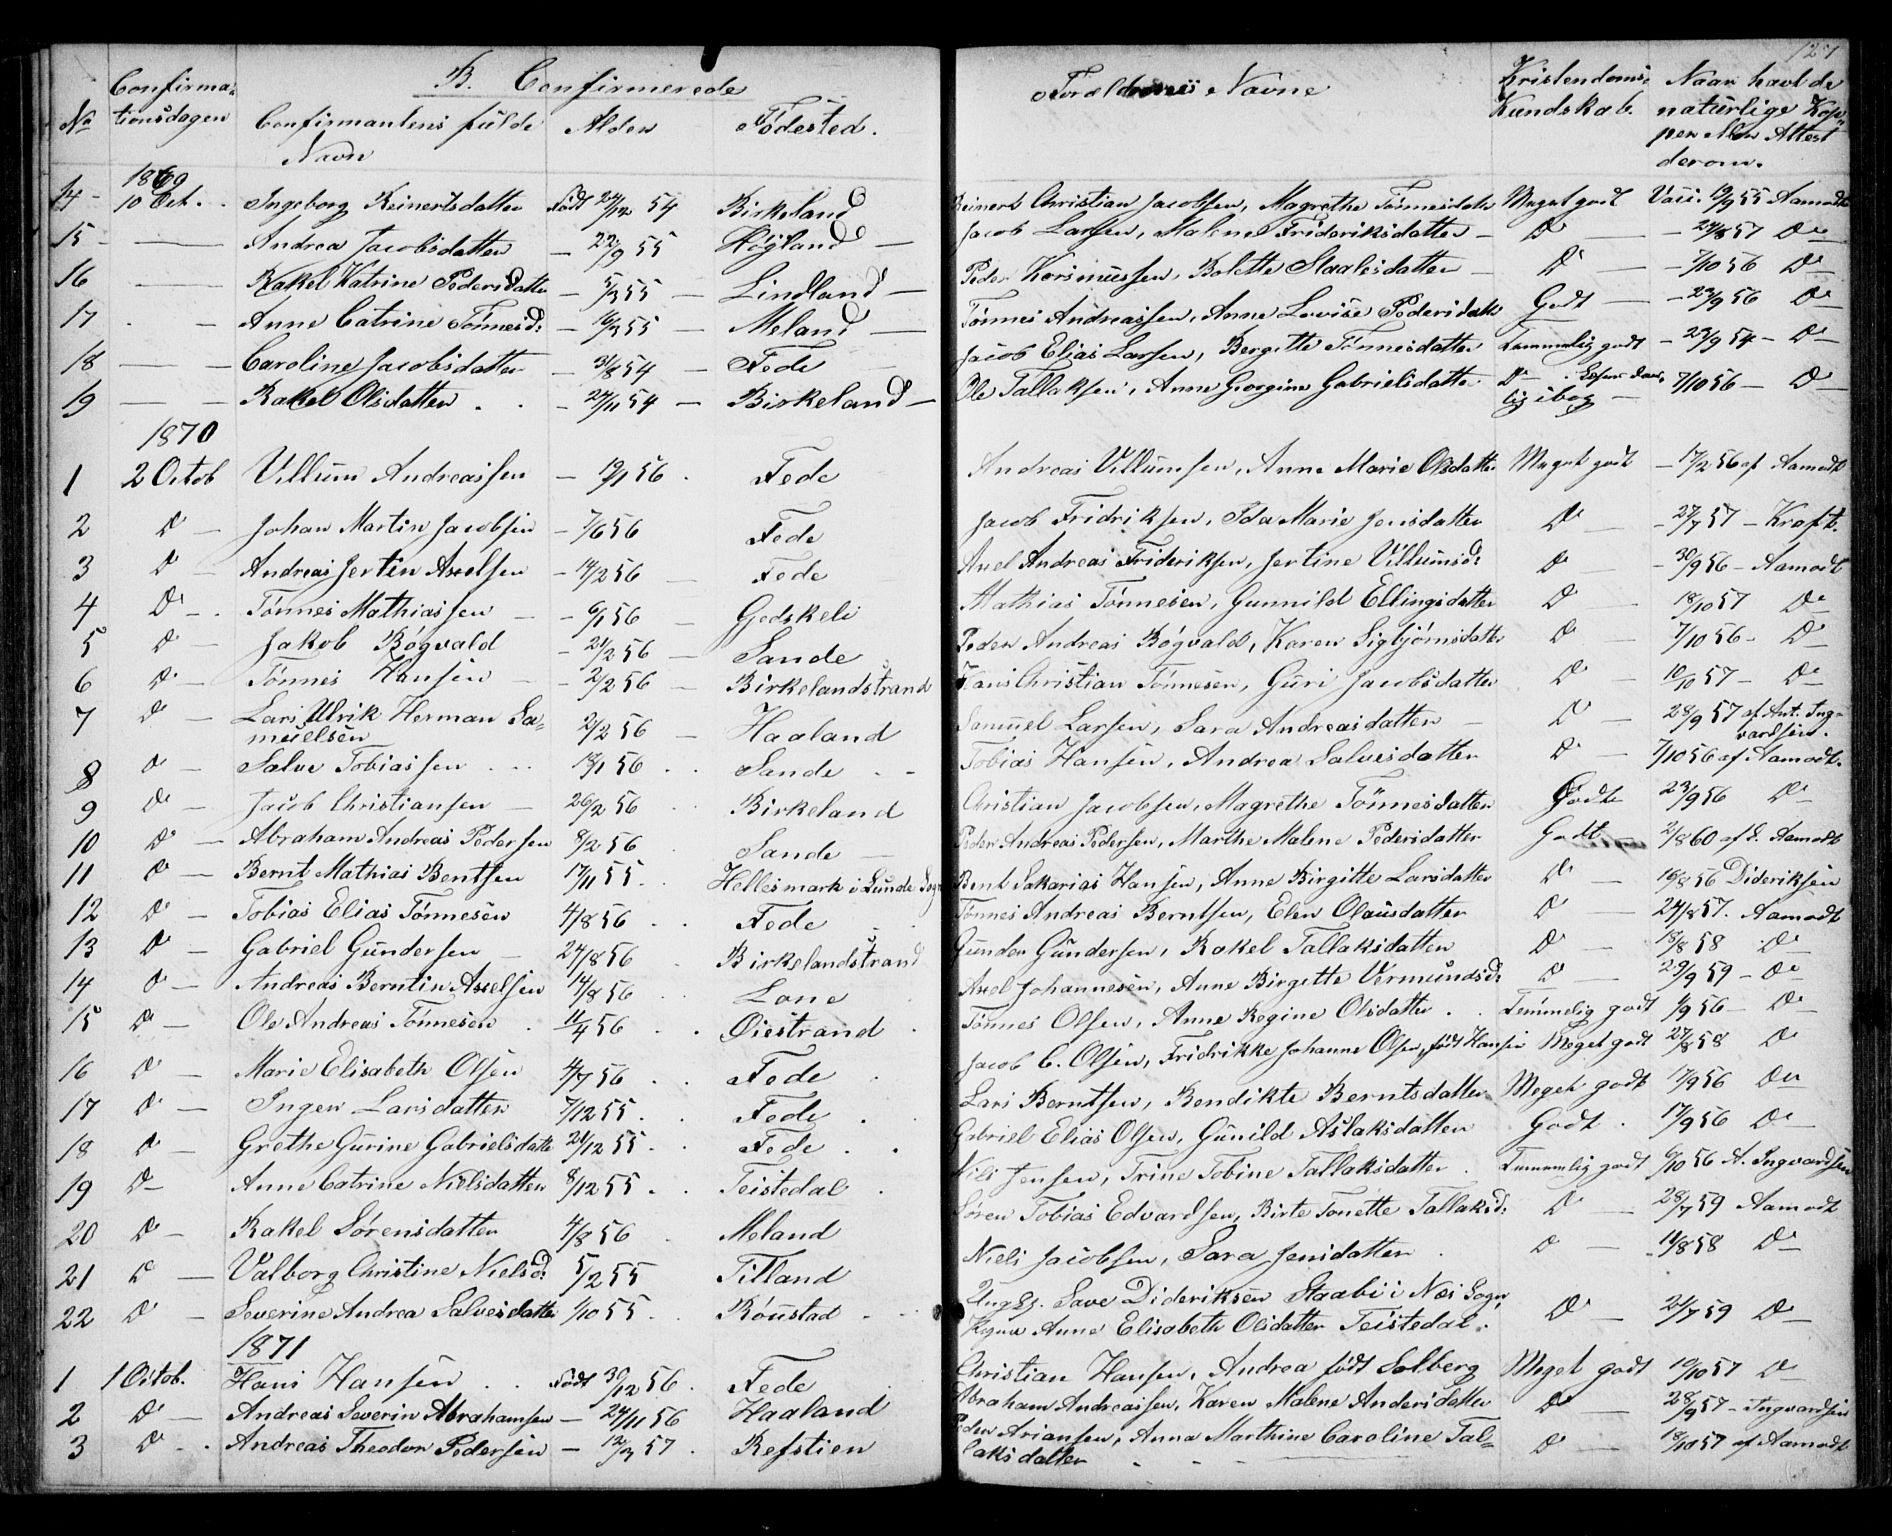 127
B. Confirmerede
No Confirmationsdagen Confirmantens fulde Navn Alder Fødested. Forældrenes Navne Kristendoms Kundskab. Naar havt de naturlige Kopper eller Attest derom.
1869
14 - 10 Oct. Ingeborg Reinertsdatter Født 24/12 54 Birkeland Reinert Christian Jacobsen, Magrethe Tønnesdatr Meget godt Vacc. 19/9 55 Aamodt
15 - — Andrea Jacobsdatter — 22/9 55 Høyland — Jacob Larsen, Malene Frideriksdatter — Do — 24/8 57 Do
16 — Rakel Katrine Pedersdatter — 5/3 55 — Lindland — Peder Rasmussen, Bolette Staalesdatter — Do — 7/10 56 Do
17 — Anne Catrine Tønnesd: — 16/3 55 — Meland — Tønnes Andreassen, Anne Lovise Pedersdatr Godt — 23/9 56 Do
18 — Caroline Jacobsdatter — 31/8 54 — Fede Jacob Elias Larsen, Bergitte Tønnesdatter Temmelig godt — 29/9 54 — Do
19 — Rakel Olsdatter . . — 27/11 54 — Birkeland — Ole Tallaksen, Anne Gorgine Gabrielsdatter Do 7/10 56 — Do
lig i bog —
1870
1 2 Octob Villum Andreassen — 19/1 56 . Fede Andreas Villumsen, Anne Marie Olsdatter Meget godt — 17/2 56 af Aamodt
2 Do — Johan Martin Jacobsen — 7/6 56 Fede Jacob Fridriksen, Ida Marie Jensdatter Do — 27/7 57 — Kraft.
3 Do — Andreas Jertin Axelsen — 14/2 56 — Fede Axel Andreas Frideriksen, Jertine Villumsd: Do — 30/9 56 — Aamodt
4 Do — Tønnes Mathiassen — 6/1 56 — Gedskeli Mathias Tønnesen, Gunnild Ellingsdatter Do — 18/10 57 Do
5 Do — Jakob Røgvald — 24/2 56 — Sande Peder Andreas Røgvald, Karen Sigbjørnsdatter Do 7/10 56 — Do
6 Do — Tønnes Hansen — 2/2 56 — Birkelandstrand Hans Christian Tønnesen, Guri Jacobsdatter Do 10/10 57 — Do
7 Do — Lars Ulrik Herman Sa= 2/2 56 — Haaland Samuel Larsen, Sara Andreasdatter — Do — 28/9 57 af Ant. Ing=
muelsen vardsen.
8 Do — Salve Tobiassen . . . 18/1 56 . . Sande . . Tobias Hansen, Andrea Salvesdatter Do — 7/10 56 af Aamodt.
9 Do — Jacob Christiansen — 26/2 56 . . Birkeland Christian Jacobsen, Magrethe Tønnesdatter Godt 23/9 56 Do
10 Do — Abraham Andreas Pedersen 8/2 56 Sande — Peder Andreas Pedersen, Marthe Malene Pedersdatter Godt 2/8 60 af S. Aamodt
11 Do — Bernt Mathias Bentsen 17/11 55 . . Hellesmark i Lunde Sogn Bent Sakarias Hansen, Anne Birgitte Larsdatter Do — 16/8 56 Dideriksen
12 Do — Tobias Elias Tønnesen 4/8 56 . . Fede Tønnes Andreas Berntsen, Elen Olausdatter Do — 24/8 57. Aamodt
13 Do — Gabriel Gundersen — 24/8 56 . Birkelandstrand Gunder Gundersen, Rakel Tallaksdatter Do — 18/8 58 Do
14 Do — Andreas Berntin Axelsen 14/8 56 . . Lone Axel Johannesen, Anne Birgitte Vermundsd: Do — 29/9 59 — Do
15 Do — Ole Andreas Tønnesen . 11/4 56 . . Øiestrand . Tønnes Olsen, Anne Regine Olsdatter . . Temmelig godt 1/9 56 — Do
16 Do — Marie Elisabeth Olsen 4/7 56 . . Fede . Jacob C. Olsen, Fridrikke Johanne Olsen, født Hansen Meget godt 27/8 58 Do
17 Do — Inger Larsdatter 7/12 55 . . Fede . . Lars Berntsen, Bendikte Berntsdatter Meget godt 17/9 56 Do
18 Do — Grethe Gurine Gabrielsdatter 21/12 55 . . Fede . . Gabriel Elias Olsen, Gunild Aslaksdatter Godt . 17/9 56 Do
19 Do — Anne Catrine Nielsdatter 8/12 55 . . Teistedal . Nils Jensen, Trine Tobine Tallaksdatter . Temmelig godt 6/10 56 A. Ingvardsen
20 Do — Rakel Sørensdatter 4/3 56 . Meland Søren Tobias Edvardsen, Birte Tonette Tallaksd: Do — 28/7 59 Aamodt
21 Do — Valborg Christine Nielsd: 5/2 55 Tilland Niels Jacobsen, Sara Jensdatter . Do — 11/8 58 Do
22 Do — Severine Andrea Salvesdatter 1/10 55 . . Rønstad . . Ung Salve Dideriksen Staabi i Næs Sogn, Do — 24/7 59 Do
Anne Elisabeth Olsdatter Teistedal.
1871
1 1 Octob. Hans Hansen . . Født 30/12 56 . Fede Christian Hansen, Andrea født Solberg Meget godt 10/10 57 Do
2 Do — Andreas Severin Abrahamsen — 24/11 56 Haaland Abraham Andreassen, Karen Malene Andersdatter Do — 28/9 57 — Ingvardsen
3 Do — Andreas Theodor Pedersen — 12/3 57 . Refstien Peder Ariansen, Anna Marthine Caroline Tal= Do — 18/10 57 af Aamodt
laksdatter